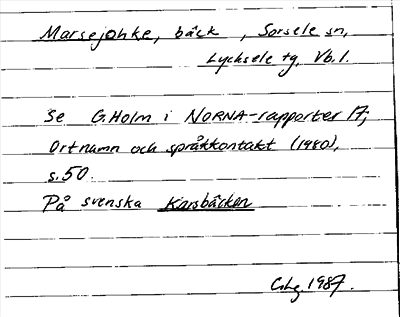 Marsejohke, bäck, Sorsele sn,
Lycksele tg, Vb.l.
Se G.Holm i NORNA-rapporter 17;
Ortnamn och språkkontakt (1980),
s.50.
På svenska Karsbäcken
1987.